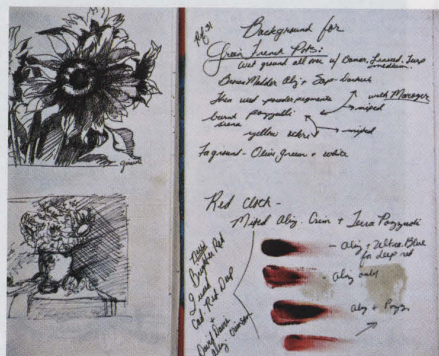 Background for
Green French Pots:
Wet ground all over w/ Damar, Linseed, Turp
medium.
Rose Madder Aliz +
Then used powder pigments
with Maroger
burnt pozzuoli
mixed
siena
yellow ochre
mixed
Foreground - Olive green + white
Red Cloth -
Mixed Aliz. Crim + Terra Pozzuoli
Aliz + Black
for deep red
Aliz only
Aliz + Pozz.
Brighter Red
I used
Cad. Red Deep
+
Aliz. Crimson